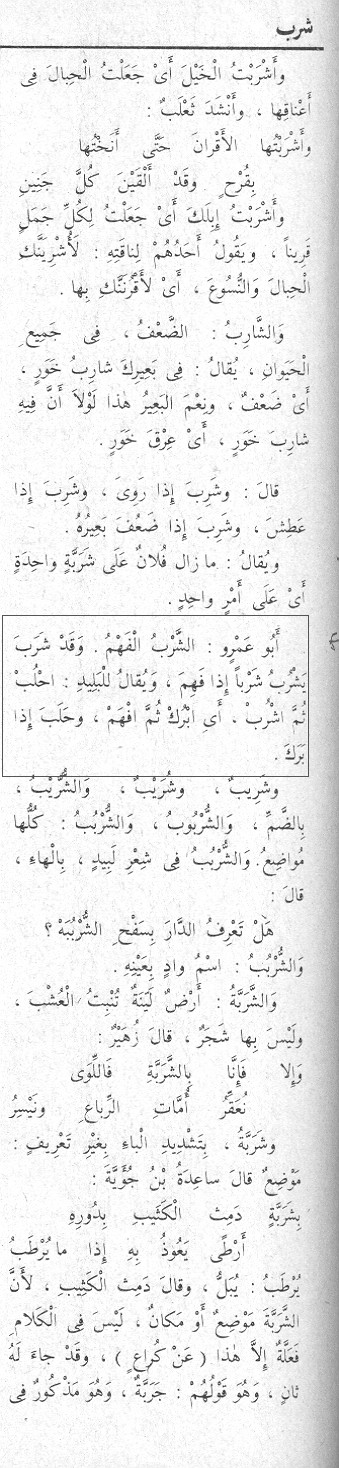 شرب
وأَشْرَبْتُ الْخَيْلَ أَىْ جَعَلْتُ الْحِبالَ فِى
أَعْناقِها ، وأَنْشَدَ ثَعْلَبٌ :
وأَشْرَبْتُها الأَقْرانَ حَتَّى أَنَخْتُها
بِقُرْحٍ وقَدْ أَلْقَيْنَ كُلَّ جَنِينِ
وأَشْرَبْتُ إِبِلَكَ أَىْ جَعَلْتُ لِكُلِّ جَمَلٍ
قَرِيناً ، ويَقُولُ أَحَدُهُمْ لِناقَتِهِ : لَأُشْرِبَنَّكِ
الْحِبالَ وَالنُّسُوعَ ، أَىْ لَأَقْرُنَنَّكِ بِها .
وَالشَّارِبُ : الضَّعْفُ ، فِى جَمِيعِ
الْحَيَوانِ ، يُقالُ : فِى بَعِيرِكَ شارِبُ خَوَرٍ ،
أَىْ ضَعْفٌ ، ونِعْمَ البَعِيرُ هٰذا لَوْلاَ أَنَّ فِيهِ
شارِبَ خَوَرٍ ، أَىْ عِرْقَ خَوَرٍ .
قالَ : وشَرِبَ إِذا رَوِىَ ، وشَرِبَ إِذا
عَطِشَ ، وشَرِبَ إِذا ضَعُفَ بَعِيرُهُ .
ويُقالُ : ما زال فُلانٌ عَلَى شَرَبَّةٍ واحِدَةٍ
أَىْ عَلَى أَمْرٍ واحِدٍ .
أَبُو عَمْرٍو : الشَّرْبُ الْفَهْمُ . وَقَدْ شَرَبَ
يَشْرُبُ شَرْباً إِذا فَهِمَ ، ويُقالُ لِلْبَلِيدِ : احْلُبْ
ثُمَّ اشْرُبْ ، أَىِ ابْرُكْ ثُمَّ افْهَمْ ، وحَلَبَ إِذا
بَرَكَ .
وشَرِيبٌ ، وشُرَيْبٌ ، والشُّرَّيْبُ ،
بِالضَّمِّ ، وَالشُّرْبُوبُ ، وَالشُّرْبُبُ : كُلُّها
مُواضِعُ . وَالشُّرْبُبُ فِى شِعْرِ لَبِيدٍ ، بِالْهاءِ ،
قالَ :
هَلْ تَعْرِفُ الدَّارَ بِسَفْحِ الشُّرْبُبَهْ ؟
وَالشُّرْبُبُ : اسْمُ وادٍ بِعَيْنِهِ .
وَالشَّرَبَّةُ : أَرْضٌ لَيِّنَةٌ تُنْبِتُ الْعُشْبَ ،
ولَيْسَ بِها شَجَرٌ ، قالَ زُهَيْرٌ :
وَإِلا فَإِنَّا بِالشَّرَبَّةِ فَاللِّوَى
نُعَقِّرُ أُمَّاتِ الرِّباعِ ونَيْسِرُ
وشَرَبَّةُ ، بِتَشْدِيدِ الْباءِ بِغَيْرِ تَعْرِيفٍ :
مَوْضِعٌ قالَ ساعِدَةُ بْنُ جُؤَيَّةَ :
بِشَرَبَّةٍ دَمِثِ الْكَثِيبِ بِدُورِهِ
أَرْطًى يَعُوذُ بِهِ إِذا ما يُرْطَبُ
يُرْطَبُ : يُبَلُّ ، وقالَ دَمِثِ الْكَثِيبِ ، لأَنَّ
الشَّرَبَّةَ مَوْضِعٌ أَوْ مَكانٌ ، لَيْسَ فِى الْكَلامِ
فَعَلَّةٌ إِلاَّ هٰذا ( عَنْ كُراعٍ ) ، وقَدْ جاءَ لَهُ
ثانٍ ، وَهُوَ قَوْلُهُمْ : جَرَبَّةٌ ، وَهُوَ مَذْكُورٌ فِى